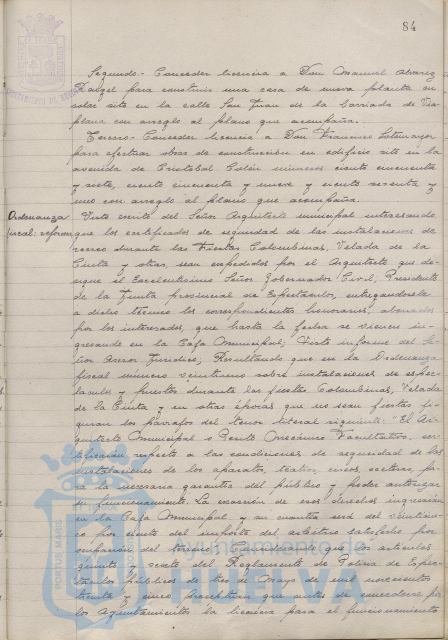 84
Segundo.- Conceder licencia a Don Manuel Alvarez
Rangel para construir una casa de nueva planta en
solar sito en la calle San Juan de la barriada de Via-
plana con arreglo al plano que acompaña.
Tercero.- Conceder licencia a Don Francisco Sotomayor
para efectuar obras de construcción en edificio sito en la
avenida de Cristobal Colón números ciento cincuenta
y siete, ciento cincuenta y nueve y ciento sesenta y
uno con arreglo al plano que acompaña.
Ordenanza
fiscal: reforma
Visto escrito del Señor Arquitecto municipal interesando
que los certificados de seguridad de las instalaciones de
recreo durante las Fiestas Colombinas, Velada de la
Cinta y otras, sean expedidos por el Arquitecto que de-
signe el Excelentísimo Señor Gobernador Civil, Presidente
de la Junta provincial de Espectáculos, entregandosele
a dicho técnico los correspondientes honorarios, abonados
por los interesados, que hasta la fecha se vienen in-
gresando en la Caja Municipal; Visto informe del Se-
ñor Asesor Jurídico; Resultando que en la Ordenanza
fiscal número veintiuno sobre instalaciones de espec-
taculos y puestos durante las fiestas Colombinas, Velada
de la Cinta y en otras épocas que no sean fiestas fi-
guran los párrafos del tenor literal siguiente: "El Ar-
quitecto Municipal o Perito Mecánico Facultativo, cer-
tificarán respecto a las condiciones de seguridad de las
instalaciones de los aparatos, teatros, circos, etc,
para la necesaria garantia del público y poder autorizar
su funcionamiento. La exacción de esos derechos ingresarán
en la Caja Municipal y su cuantía será del veinticin-
co por ciento del importe del arbitrio satisfecho por
ocupación del terreno". Considerando que los artículos
quinto y siete del Reglamento de Policía de Espec-
táculos Públicos de tres de Mayo de mil novecientos
treinta y cinco preceptúan que antes de concederse por
los Ayuntamientos la licencia para el funcionamiento
Ayuntamiento de
HUELVA
PORTUS MARIS